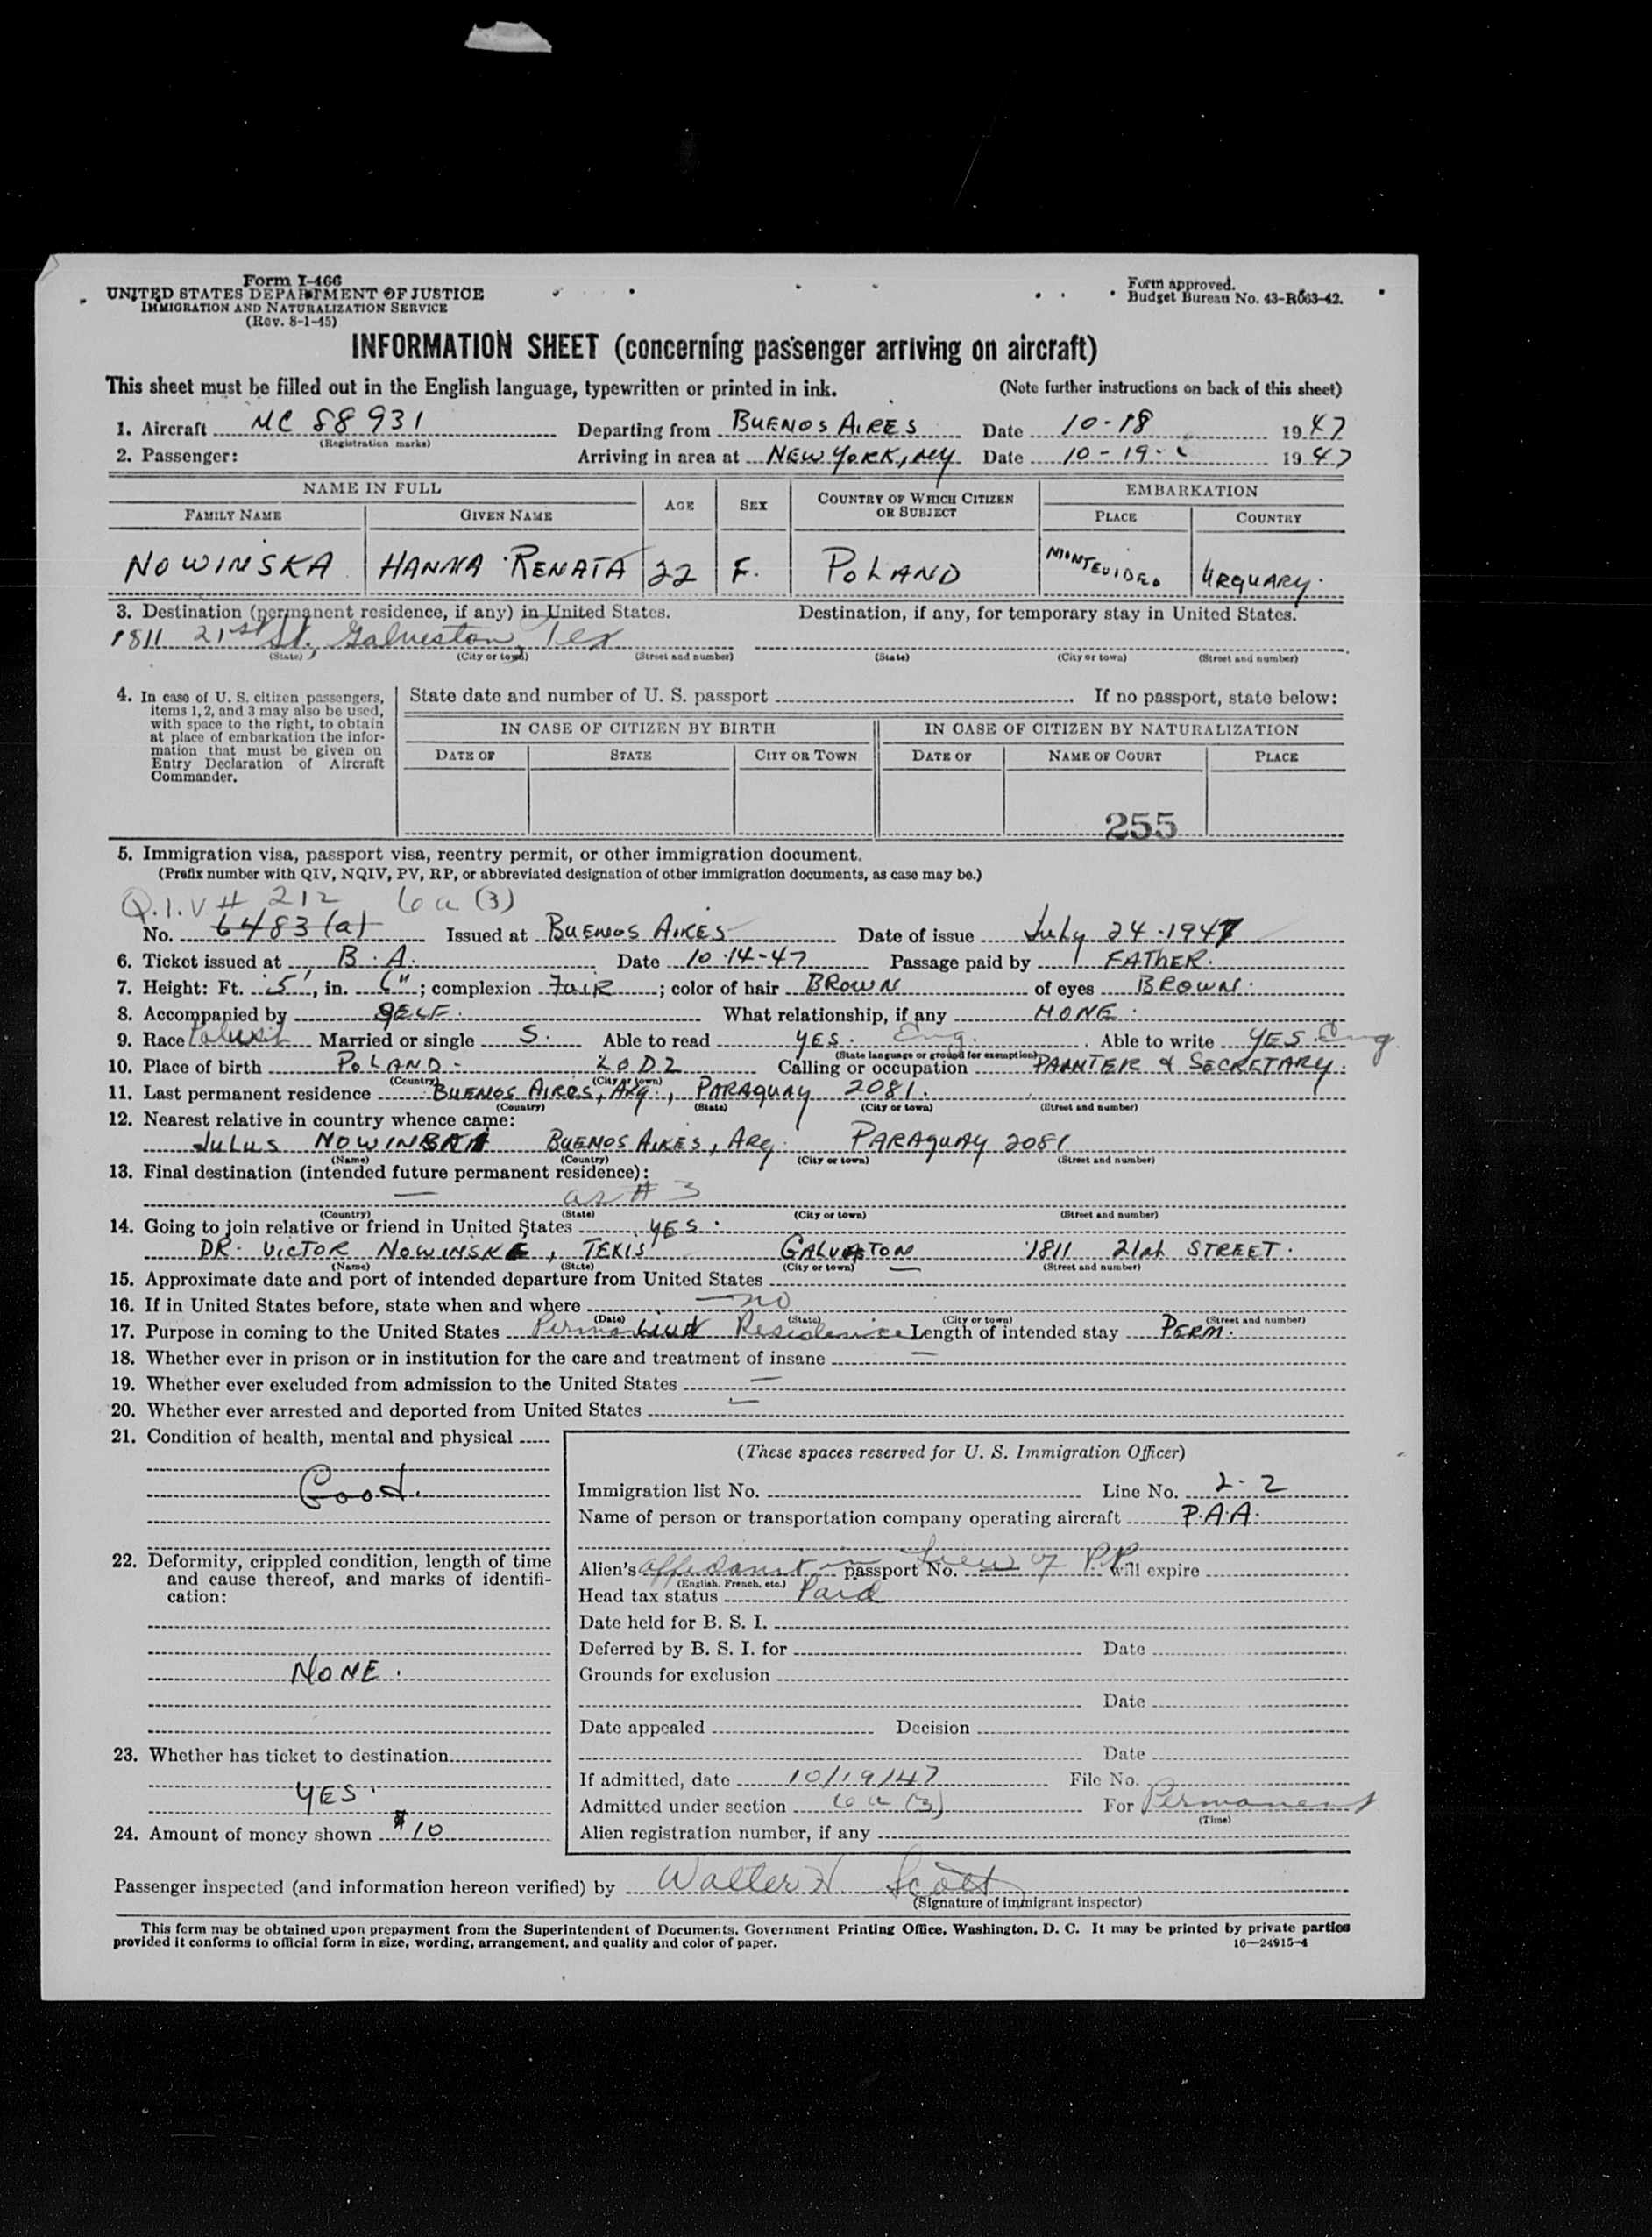 Form I-466
UNITED STATES DEPARTMENT OF JUSTICE
IMMIGRATION AND NATURALIZATION SERVICE
(Rev. 8-1-45)
Form approved.
Budget Bureau No. 43-R063-42.
INFORMATION SHEET (concerning passenger arriving on aircraft)
This sheet must be filled out in the English language, typewritten or printed in ink. (Note further instructions on back of this sheet)
1. Aircraft NC 88931 Departing from BUENOS AIRES Date 10-18 1947
(Registration marks)
2. Passenger: Arriving in area at NEW YORK, NY Date 10-19- 1947
NAME IN FULL AGE SEX COUNTRY OF WHICH CITIZEN OR SUBJECT EMBARKATION
FAMILY NAME GIVEN NAME PLACE COUNTRY
NOWINSKA HANNA RENATA 22 F. POLAND MONTEVIDEO URQUARY.
3. Destination (permanent residence, if any) in United States. Destination, if any, for temporary stay in United States.
1811 21st St., Galveston, Tex
(State) (City or town) (Street and number) (State) (City or town) (Street and number)
4. In case of U. S. citizen passengers, items 1, 2, and 3 may also be used, with space to the right, to obtain at place of embarkation the information that must be given on Entry Declaration of Aircraft Commander.
State date and number of U. S. passport If no passport, state below:
IN CASE OF CITIZEN BY BIRTH IN CASE OF CITIZEN BY NATURALIZATION
DATE OF STATE CITY OR TOWN DATE OF NAME OF COURT PLACE
255
5. Immigration visa, passport visa, reentry permit, or other immigration document.
(Prefix number with QIV, NQIV, PV, RP, or abbreviated designation of other immigration documents, as case may be.)
Q.I.V # 212 6a (3)
No. 6483 (a) Issued at BUENOS AIRES Date of issue July 24-1947
6. Ticket issued at B.A. Date 10-14-47 Passage paid by FATHER.
7. Height: Ft. 5', in. 6"; complexion FAIR; color of hair BROWN of eyes BROWN.
8. Accompanied by SELF. What relationship, if any NONE.
9. Race Polish Married or single S. Able to read YES. Eng. Able to write YES. Eng
(State language or ground for exemption)
10. Place of birth POLAND- LODZ Calling or occupation PAINTER & SECRETARY.
(Country) (City or town)
11. Last permanent residence BUENOS AIRES, Arg., PARAQUAY 2081.
(Country) (State) (City or town) (Street and number)
12. Nearest relative in country whence came:
JULUS BUENOS AIRES, ARG. PARAQUAY 2081
(Name) (Country) (City or town) (Street and number)
13. Final destination (intended future permanent residence):
— as # 3
(Country) (State) (City or town) (Street and number)
14. Going to join relative or friend in United States YES.
DR. VICTOR , TEXIS 1811 21st STREET.
(Name) (State) (City or town) (Street and number)
15. Approximate date and port of intended departure from United States —
16. If in United States before, state when and where — no
(Date) (State) (City or town) (Street and number)
17. Purpose in coming to the United States Permanent Residence Length of intended stay PERM.
18. Whether ever in prison or in institution for the care and treatment of insane —
19. Whether ever excluded from admission to the United States —
20. Whether ever arrested and deported from United States —
21. Condition of health, mental and physical
Good.
22. Deformity, crippled condition, length of time and cause thereof, and marks of identification:
NONE.
23. Whether has ticket to destination
YES.
24. Amount of money shown $10
(These spaces reserved for U. S. Immigration Officer)
Immigration list No. Line No. 2-2
Name of person or transportation company operating aircraft P.A.A.
Alien's affidavit in passport No. Lieu of P.P. will expire
(English, French, etc.)
Head tax status Paid
Date held for B. S. I.
Deferred by B. S. I. for Date
Grounds for exclusion
Date
Date appealed Decision
Date
If admitted, date 10/19/47 File No.
Admitted under section 6a (3) For Permanent
(Time)
Alien registration number, if any
Passenger inspected (and information hereon verified) by Walter H Scott
(Signature of immigrant inspector)
This form may be obtained upon prepayment from the Superintendent of Documents, Government Printing Office, Washington, D. C. It may be printed by private parties
provided it conforms to official form in size, wording, arrangement, and quality and color of paper. 16—24915-4